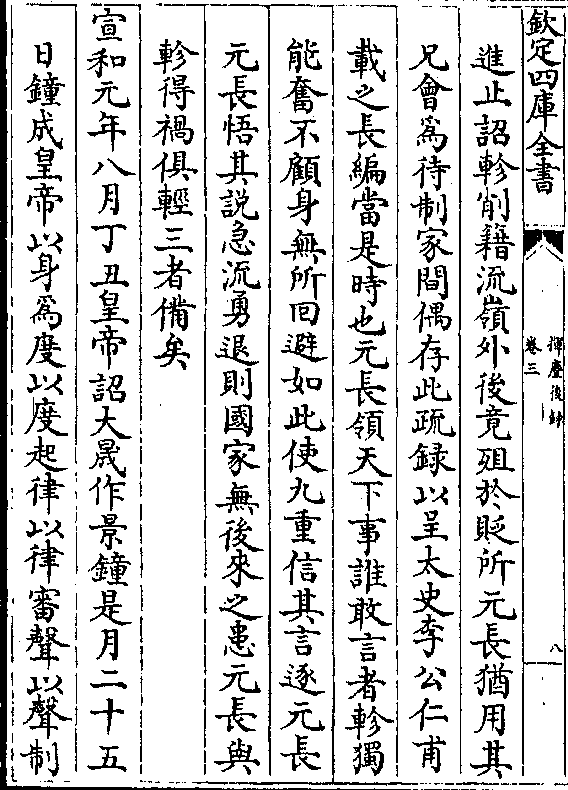 欽定四庫全書
揮麈後録
卷三
八
進止詔軫削籍流嶺外後竟殂於貶所元長猶用其
兄會為待制家間偶存此疏録以呈太史李公仁甫
載之長編當是時也元長領天下事誰敢言者軫獨
能奮不顧身無所回避如此使九重信其言逐元長
元長悟其説急流勇退則國家無後來之患元長與
軫得禍俱輕三者備矣
宣和元年八月丁丑皇帝詔大晟作景鐘是月二十五
日鐘成皇帝以身為度以度起律以律審聲以聲制